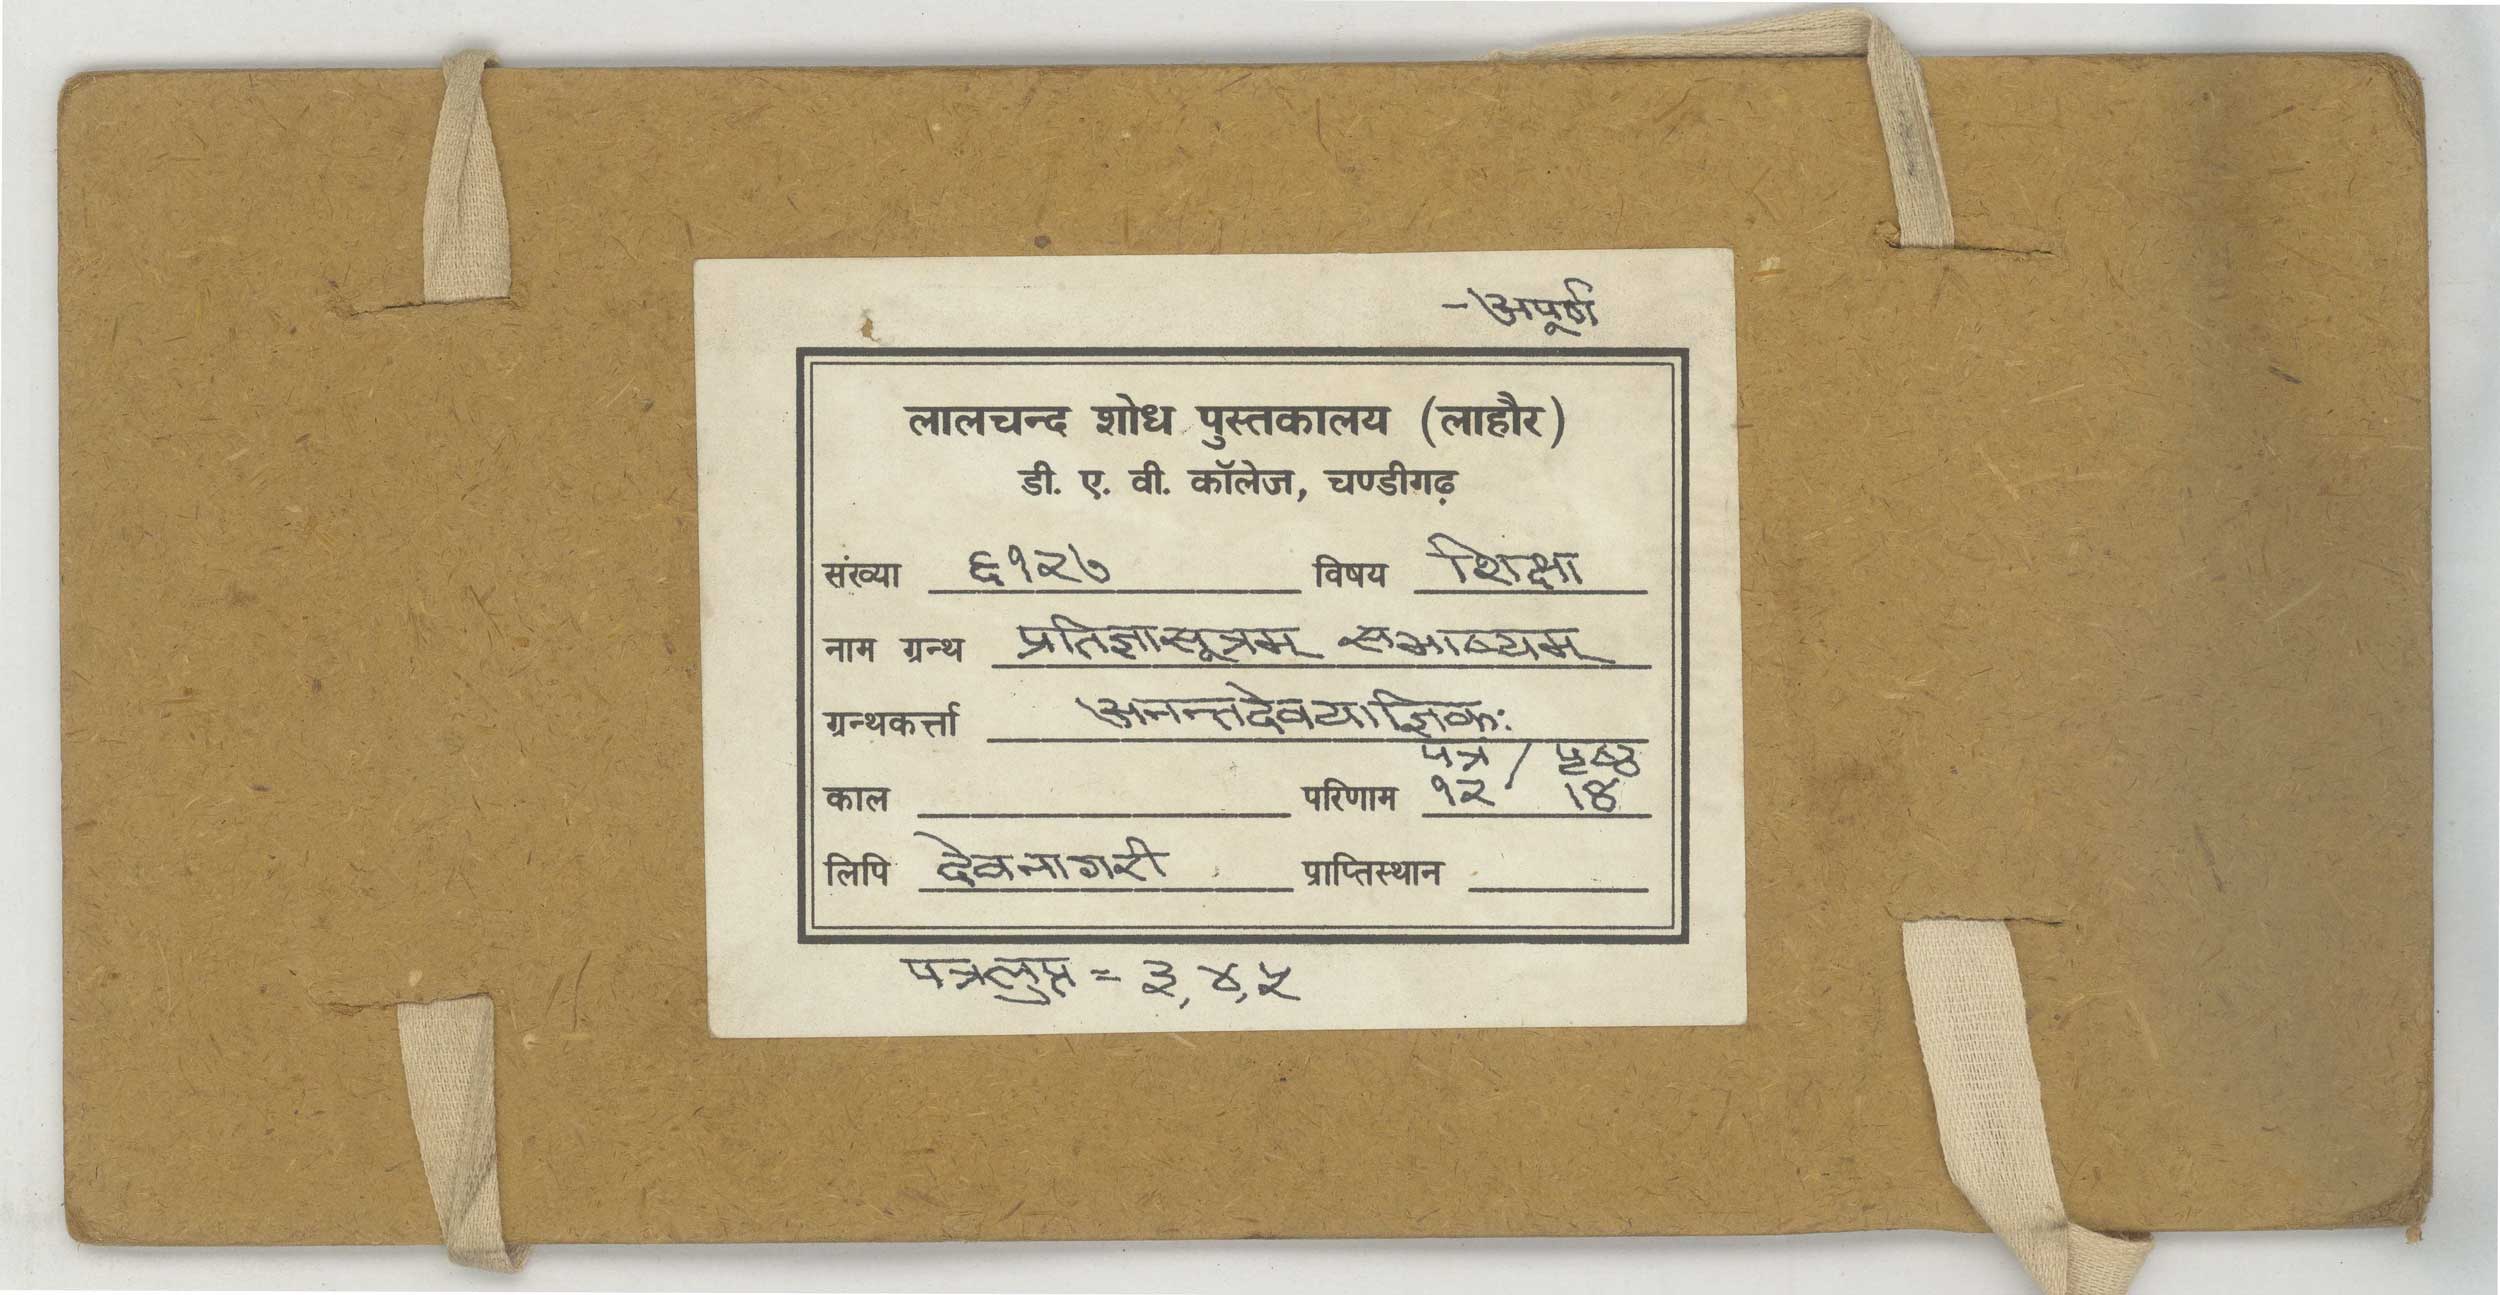 -अपूर्ण
लालचन्द शोध पुस्तकालय (लाहौर)
डी. ए. वी. कॉलेज, चण्डीगढ़
संख्या ६१२७ विषय शिक्षा
नाम ग्रन्थ प्रतिज्ञासूत्रम् सभाष्यम्
ग्रन्थकर्त्ता अनन्तदेवयाज्ञिकः
पत्र / पृष्ठ
काल परिणाम १२ 18
लिपि देवनागरी प्राप्तिस्थान
पत्रलुप्त = ३, ४, ५